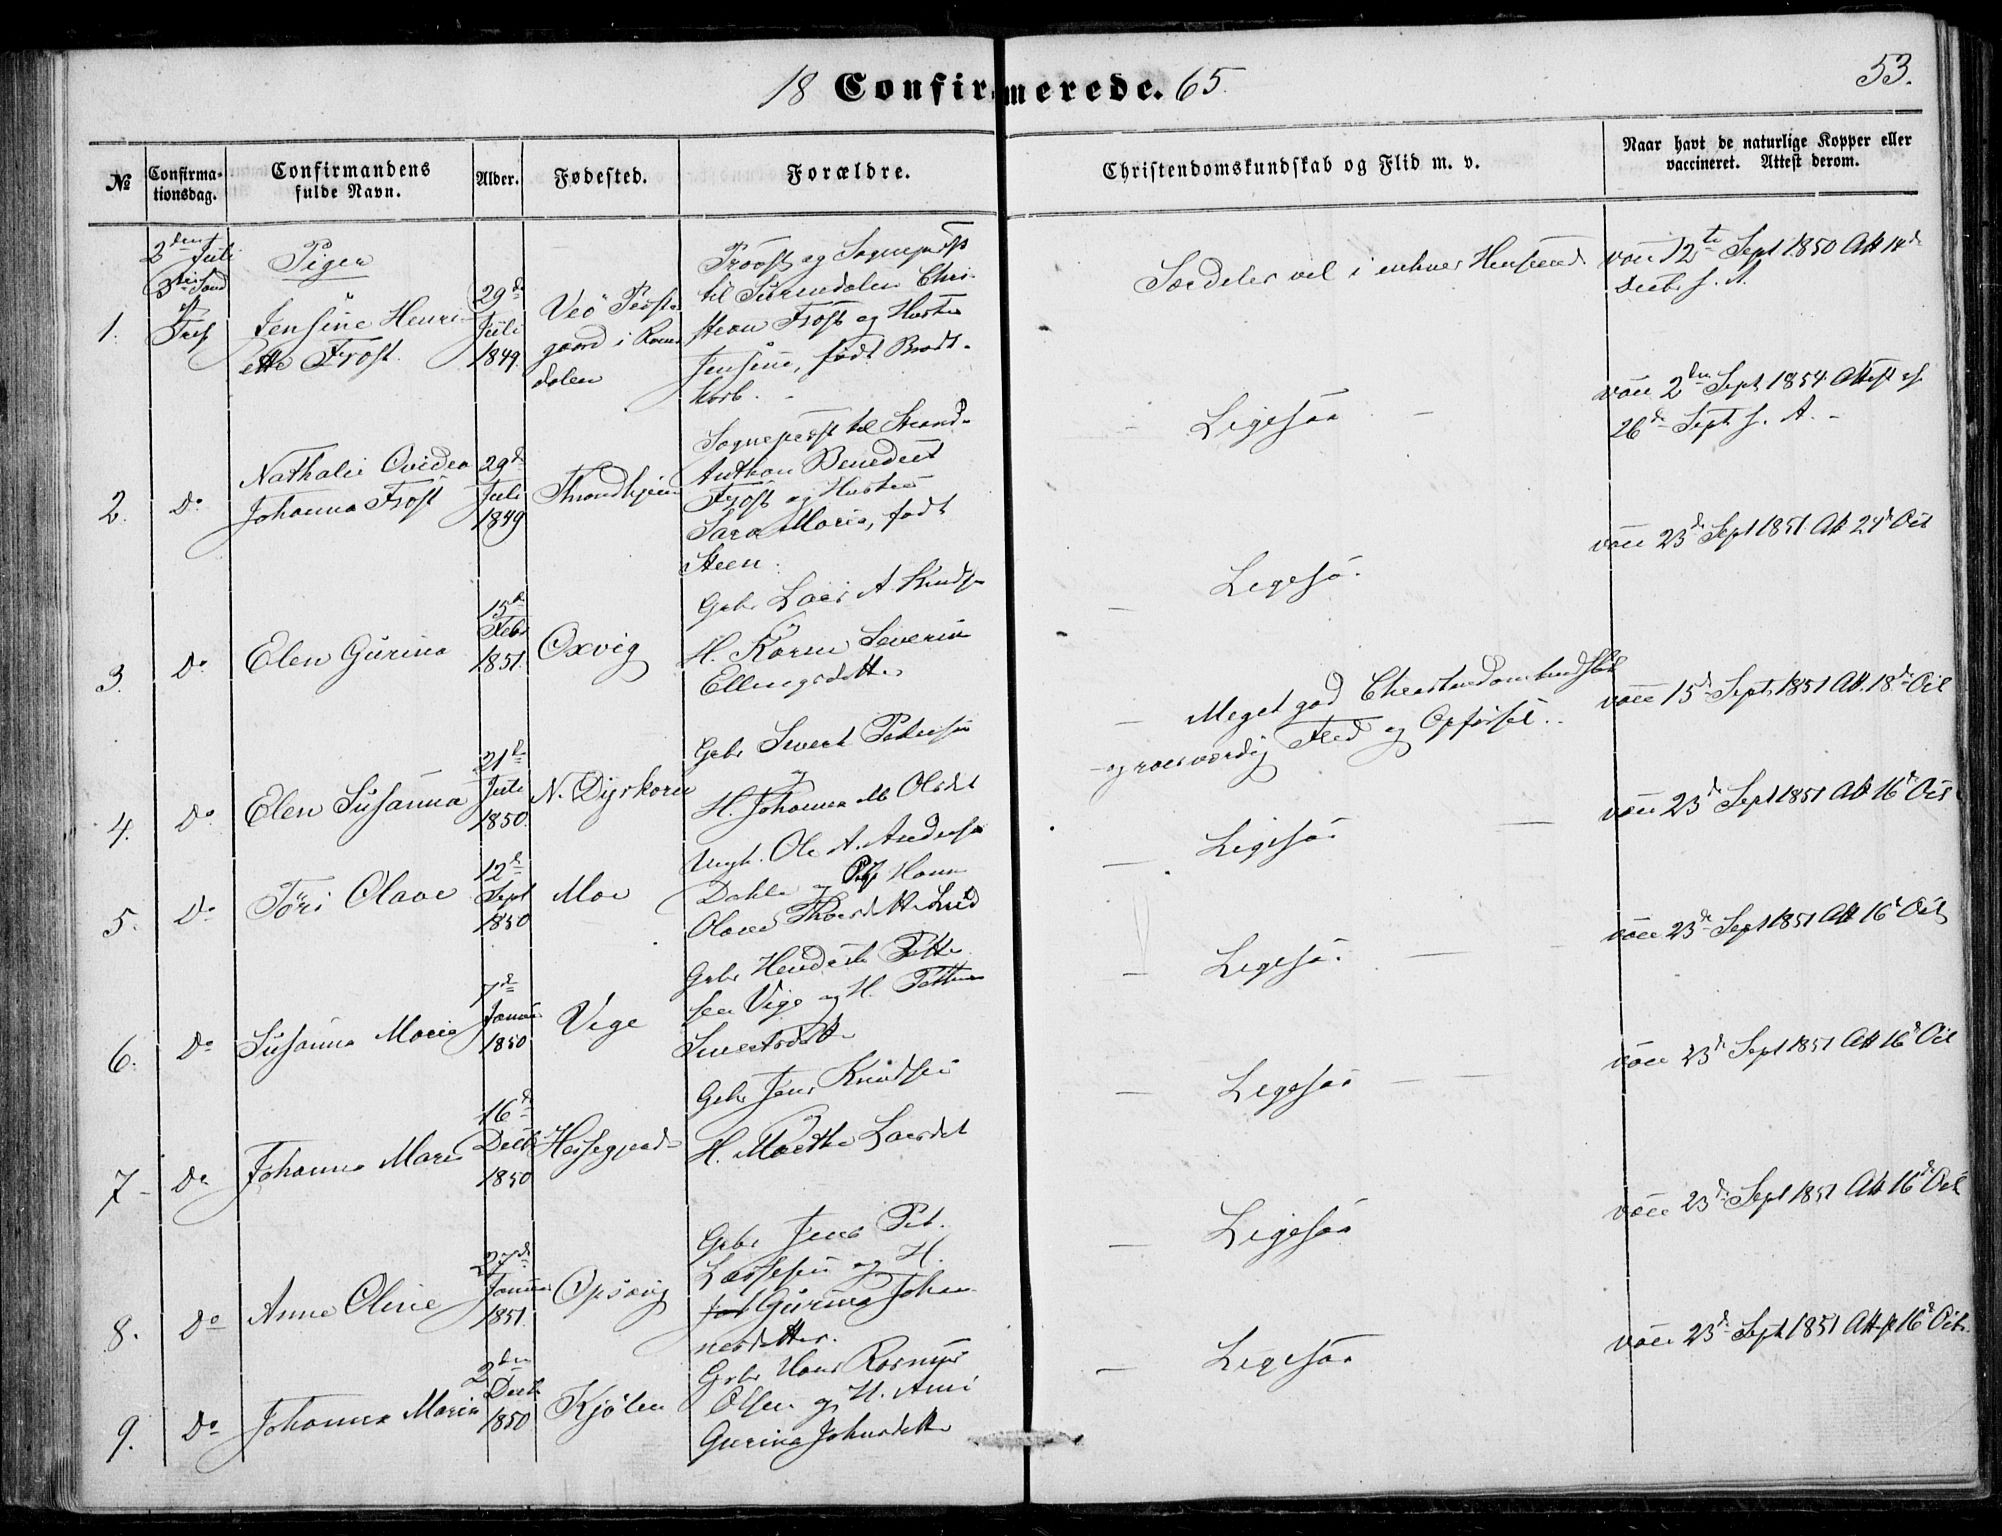 18 Confirmerede. 65.
53.
No
Confirma-
tionsdag.
Confirmandens
fulde Navn.
Alder.
Fødested.
Forældre.
Christendomskundskab og Flid m. v.
Naar havt de naturlige Kopper eller
vaccineret. Attest derom.
2den Juli
Piger
1.
Jensine Henri-
ette Frost.
29de
Juli
1849.
Veö Præste-
gaard i Roms
dalen
Provst og Sognepræst
til Surendalen Chri-
stian Frost og Hustru
Jensine, født Brodt-
korb.
Særdeles vel i enhver Henseende
vacc 12te Sept 1850 Att 14de
Decbr s. A.
2.
Do
Nathalie Ovidea
Johanna Frost
29de
Juli
1849
Throndhjem
Sognepræst til Strand
Anthon Benedict
Frost og Hustru
Sara Maria, født
Steen.
Ligesaa
vacc 2den Sept 1854 Attest af
26de Sept s. A.
3.
Do
Elen Gurina
15de
Febr
1851.
Oxvig
Gbr Lars A. Knuds
H. Karen Severin
Ellingsdatter
Ligesaa.
vacc 23de Sept 1851 Att 24de Oct
4.
Do
Elen Susanna
21de
Juli
1850.
N. Dyrkorn
Gbr Sivert Pedersen
og
H. Johanna M. Olsdat
Meget god Christendomskundskab
og roesværdig Flid og Opførsel.
vacc 15de Sept 1851 Att. 18de Oct
5.
Do
Töri Olave
12de
Sept
1850
Moe
Ungk. Ole A. Andersen
Dahle og Pige Hanna
Olave Thoresdatter Lied
Ligesaa
vacc 23de Sept 1851 Att 16de Oct
6.
Do
Susanna Maria
7de
Januar
1850
Vige
Gbr Hendrik Pette
sen Vige og H. Petterne
Sivertsdatter
Ligesaa.
vacc 23de Sept 1851 Att 16de Oct
7
Do
Johanna Marie
16de
Decbr
1850
Hessegjerd
Gbr Jens Knudsen
og
H. Marthe Larsdat
Ligesaa
vacc 23de Sept 1851 Att 16de Oct
8.
Do
Anne Oline
27de
Januar
1851.
Opsang
Gbr Jens Pet.
Larssen og H.
Gurina Johan
nesdatter.
Ligesaa
vacc 23de Sept 1851 Att 16de Oct
9.
Do
Johanna Maria
2den
Decbr
1850
Kjölen
Gbr Hans Rasmus
Olsen og H. Ane
Gurina Johnsdatter
Ligesaa
vacc 23de Sept 1851 Att 16de Oct.